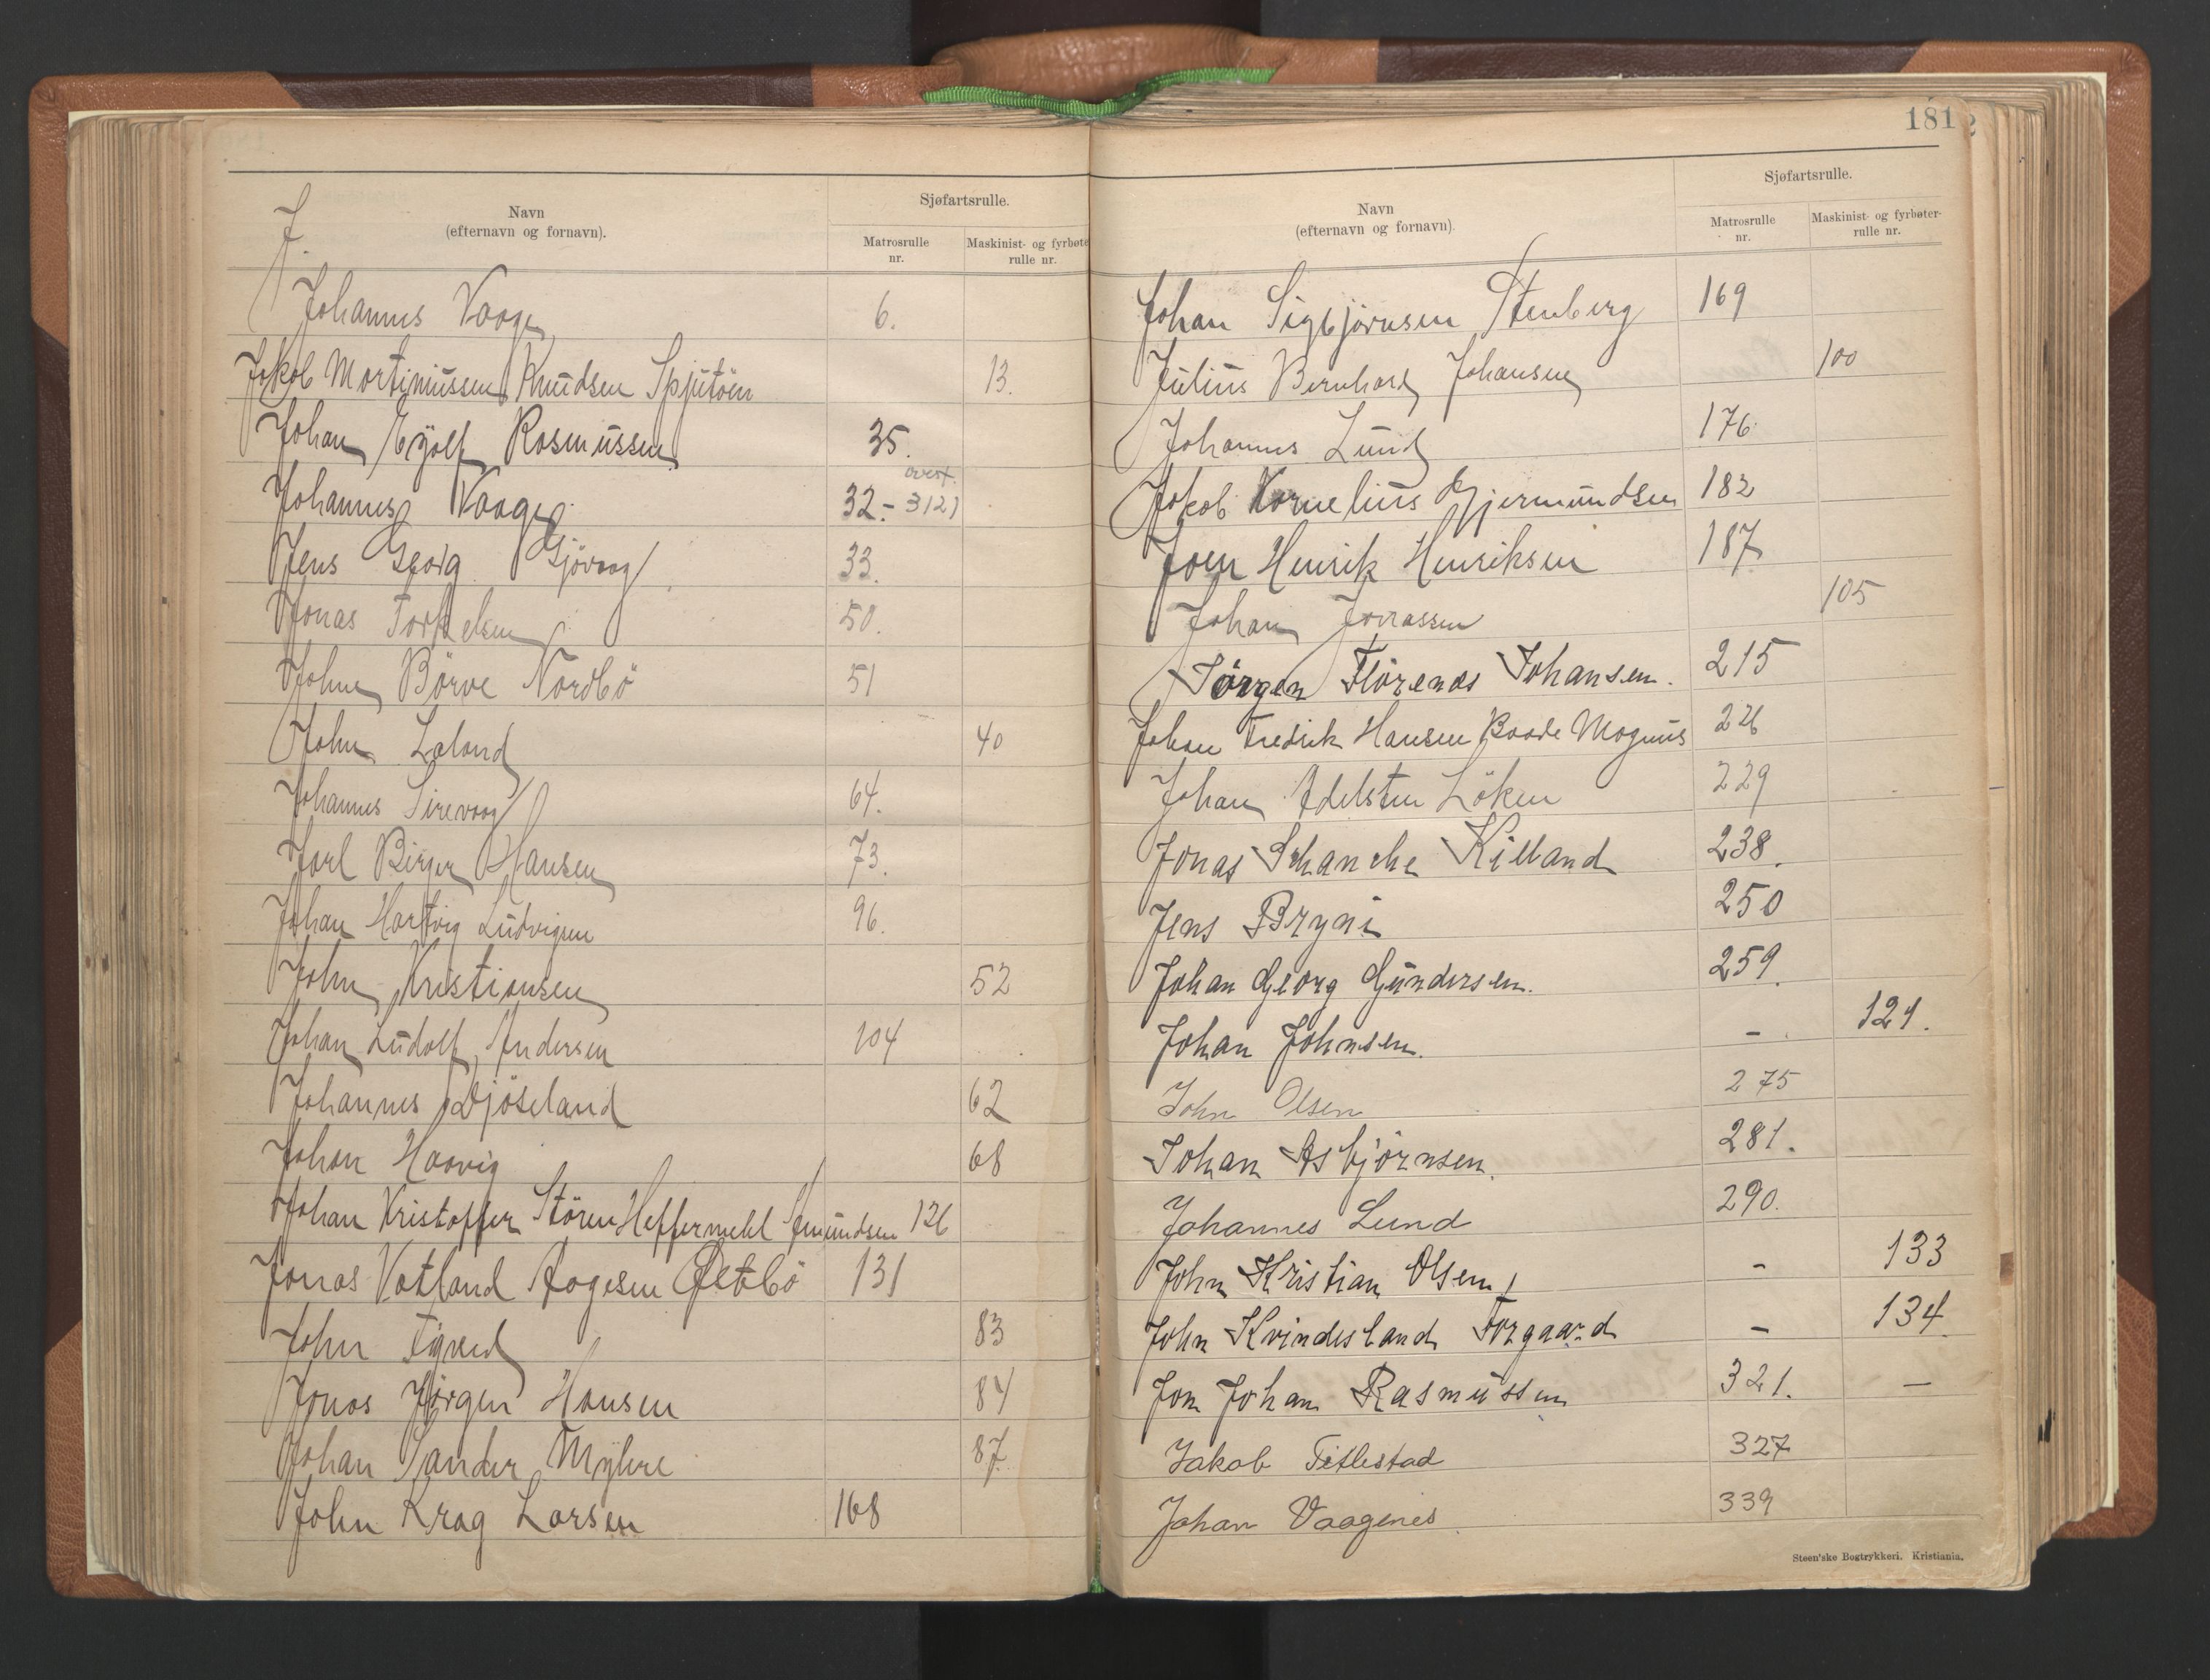 J.
Navn
(efternavn og fornavn).
Sjøfartsrulle.
Matrosrulle
nr.
Maskinist- og fyrbøte
rulle nr.
Johannes Vaage 6.
Jakob Mortinussen Knudsen Spjutöen 13.
Johan Eyolf Rasmussen 35.
overf.
Johannes Vaage 32.-
Jens Georg Gjövaag 33.
Jonas Torkelsen 50.
Johne Börve Nordbö 51
John Laland 40
Johannes Sirevaag 64.
Jarl Birger Hansen 73.
Johan Hartvig Ludvigsen 96.
John Kristiansen 52
Johan Ludolf Andersen 104
Johannes Djöseland 62
Johan Haavig 68
Johan Kristoffer Stören Heffermehl Amundsen 126
Jonas Votland Aagesen Østebö 131
John Tigved 83
Jonas Jörgen Hansen 84
Johan Sander Myhre 87.
John Krag Larsen 168
181
2
Navn
(efternavn og fornavn)
Sjøfartsrulle.
Matrosrulle
nr.
Maskinist- og fyrbøter-
rulle nr.
Johan Sigbjörnsen Stenberg 169
Julius Bernhard Johansen 100
Johannes Lund 176.
Jakob Kornelius Gjermundsen 182
Joen Henrik Henriksen 187
Johan Jonassen 105
Jörgen Florenæs Johansen. 215
Johan Fredrik Hansen Baade Magnus 226
Johan Adelsten Löken 229
Jonas Schanche Killand 238.
Jens Bryni 250
Johan Georg Gundersen. 259.
Johan Johnsen. - 121.
John Olsen 275
Johan Asbjörnsen. 281.
Johannes Lund 290.
John Kristian Olsen - 133
John Kvindesland Torgaard - 134
Jon Johan Rasmussen 321. -
Jakob Titlestad 327
Johan Vaagenes 339
Steen'ske Bogtrykkeri. Kristiania.